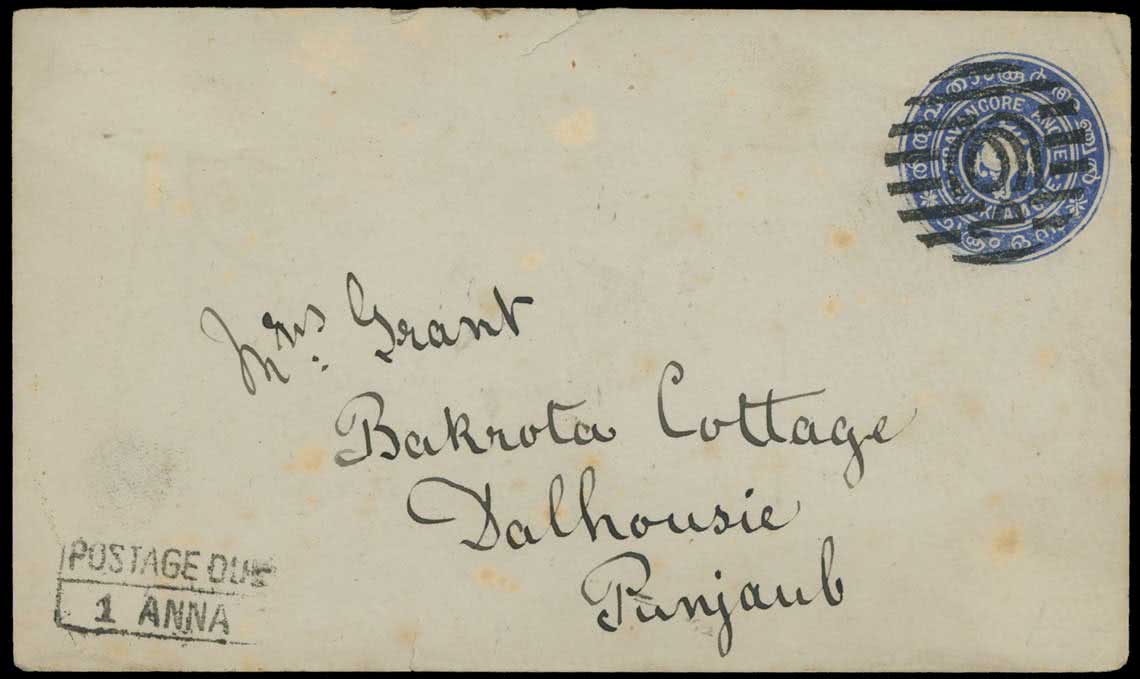 TRAVANCORE ANCHEL
Mrs. Grant
Bakrota Cottage
Dalhousie
Punjaub
POSTAGE DUE
1 ANNA